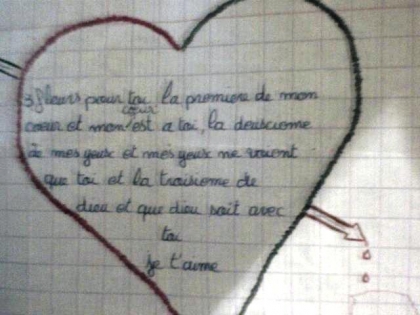 3 fleurs pour toi, la premiere de mom
coeur
coeur et mon est a toi, la deuscieme
de mes yeux et mes yeux ne voient
que toi et la troisieme de
dieu et que dieu soit avec
toi
je t'aime